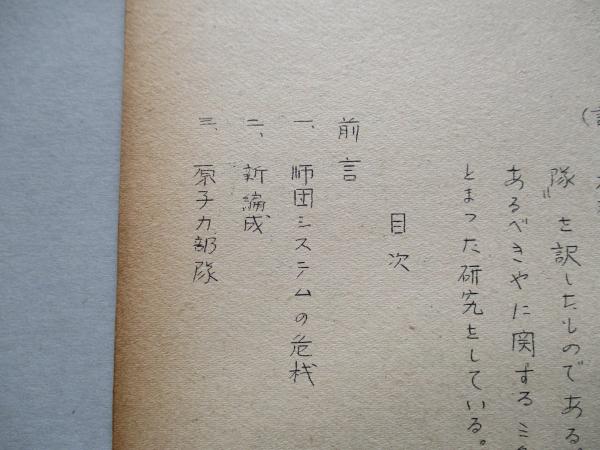 隊〟を訳したものである。
あるべきやに関する
とまった研究をしている。
目次
前言
一、師団システムの危機
二、新編成
三、原子力部隊